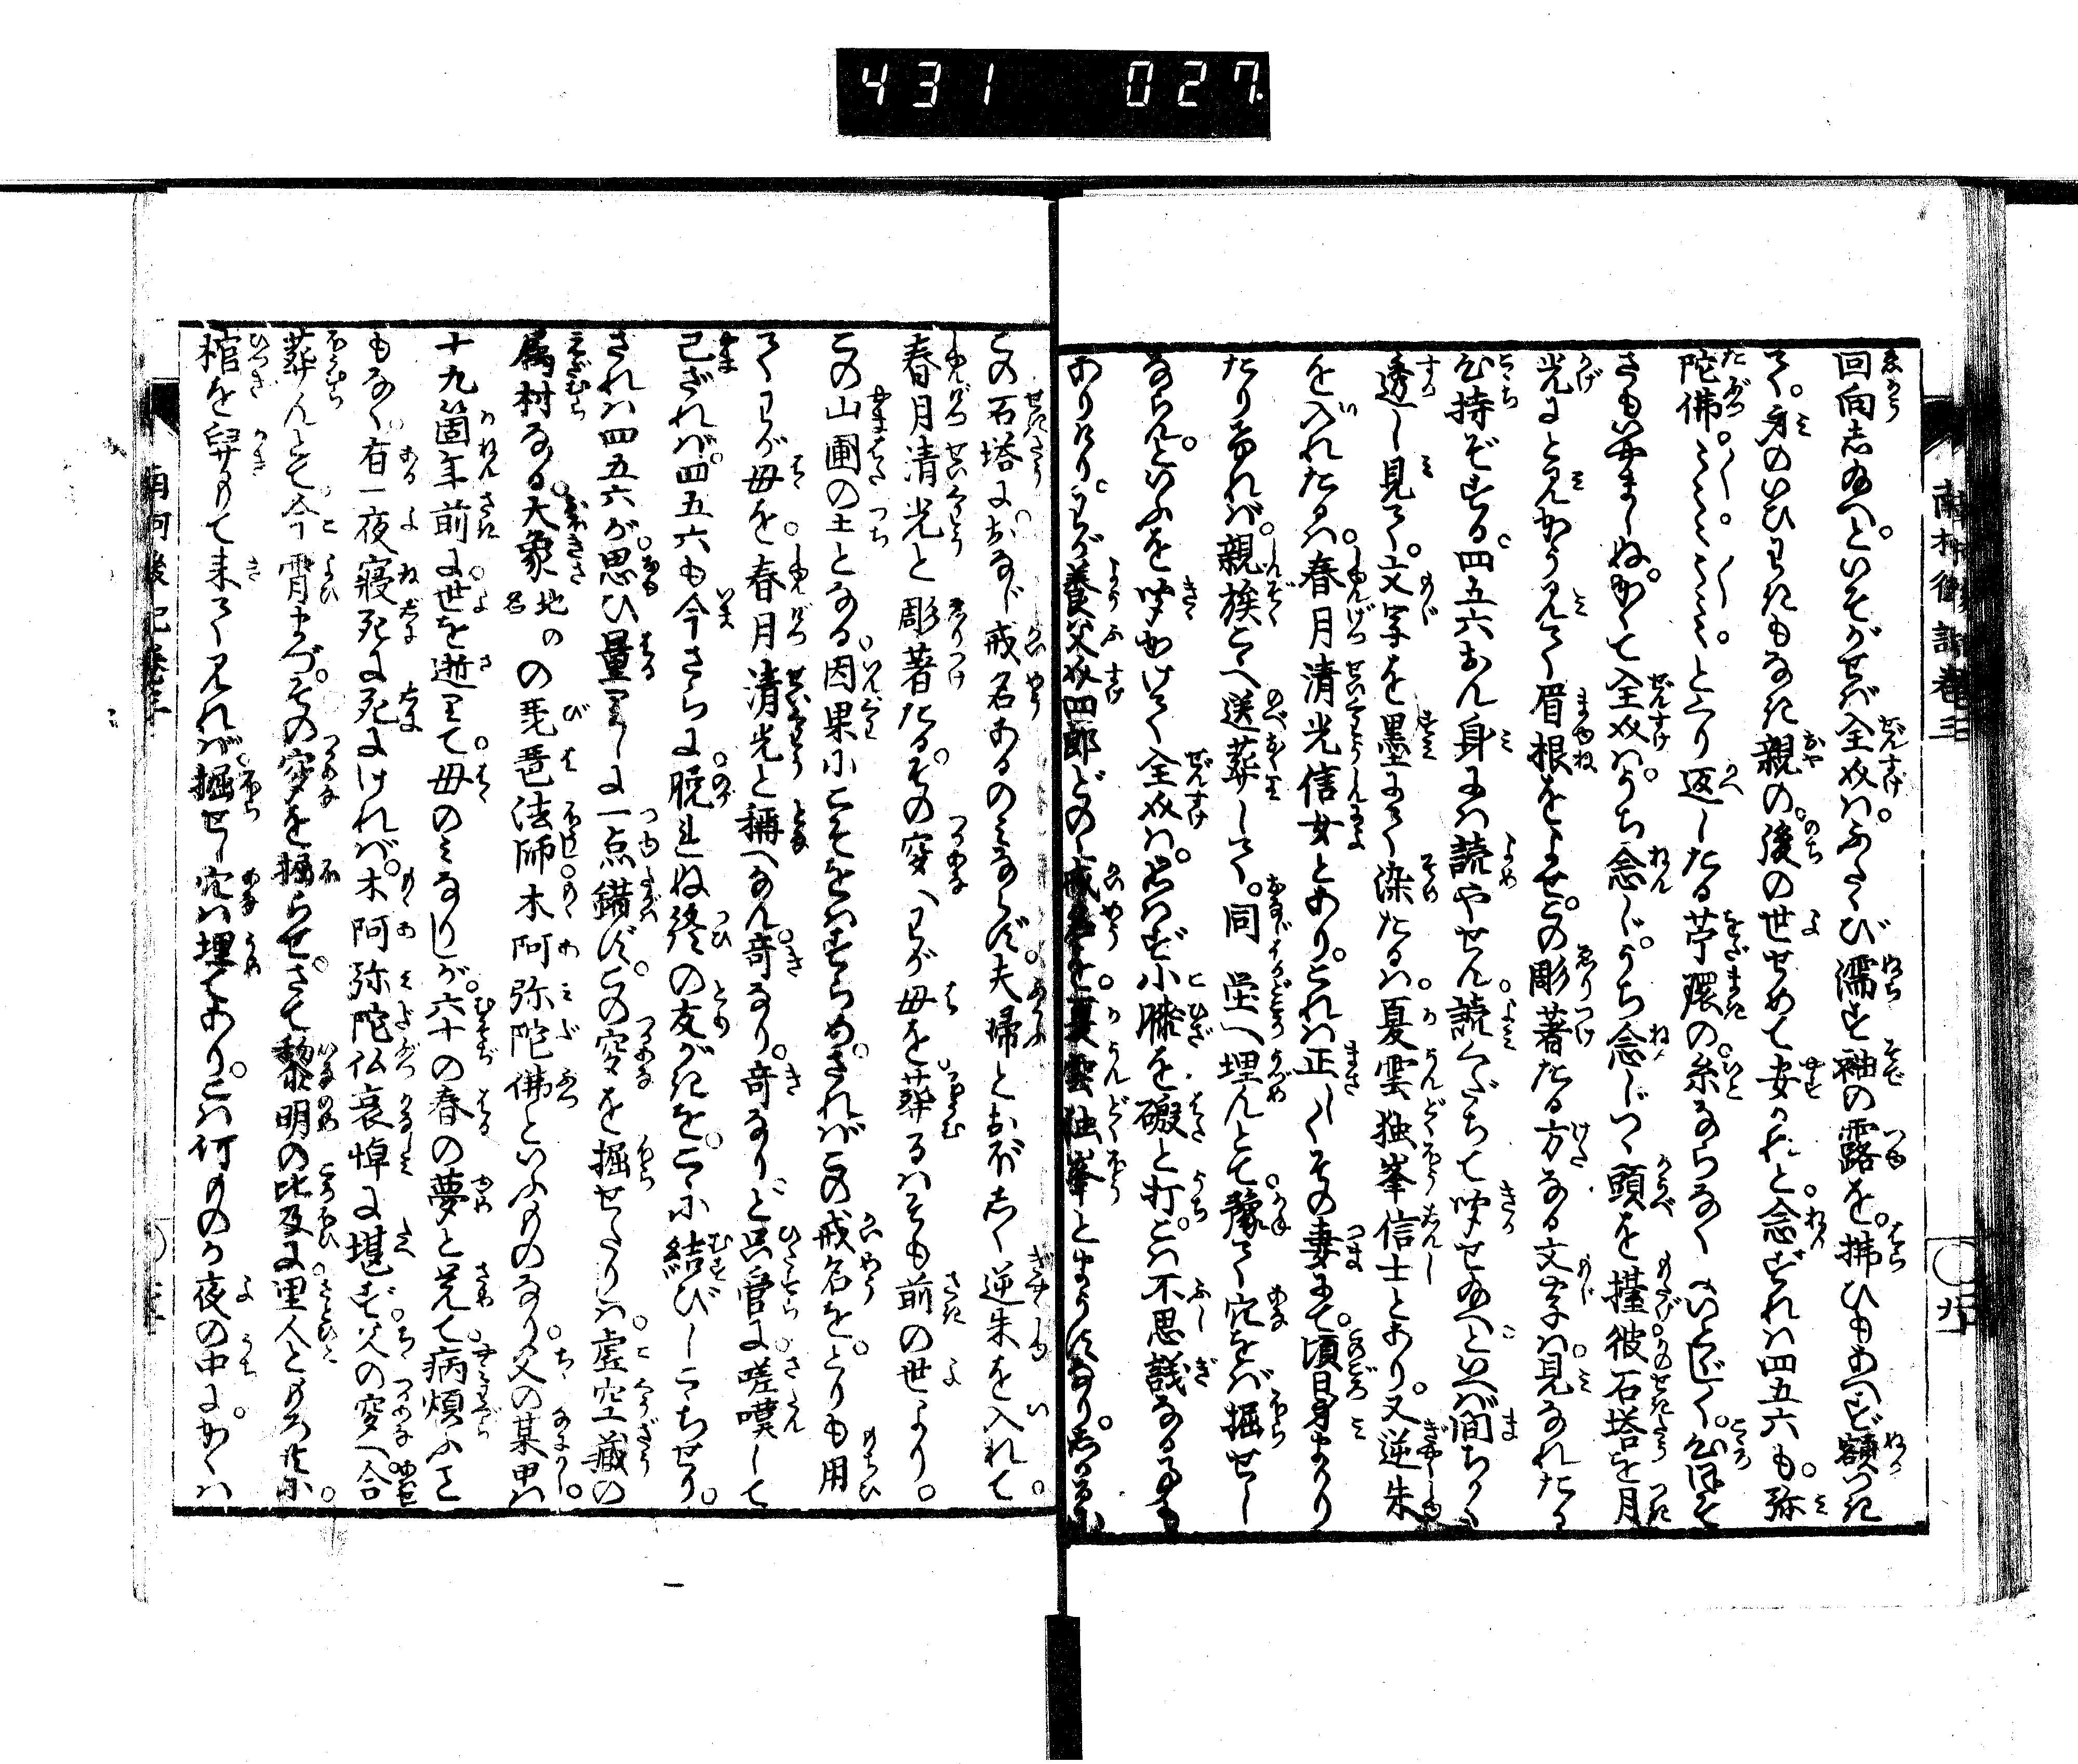 431 027
南柯後記巻三
回向し給へ。といそがせば全八は。ふたゝび濡るゝ袖の露を。拂ひもあへず額づき
て。身のいひわきもなき親の。後の世せめて安かれと。念ずれば四五六も。弥
陀佛。〳〵。〳〵。とくり返したる苧環の。糸ならなくにいとゞしく。心ほそ
さもいやましぬ。かくて全八は。うち念じ。うち念じつゝ頭を擡。彼石塔を月
光にとみかうみて。眉根をよせ。この彫著たる方なる文字は。見なれたる
心持ぞする。四五六おん身には読やせん。読くだちて聞せ給へといへば。間ちかく
透し見て。文字を墨にて染たるは。夏雲独峯信士とあり。又逆朱
を入れたるは。春月清光信女とあり。これは正しくその妻にて。頃日身まかり
たりければ。親族とく送葬して。同塋へ埋んとて。豫て穴をば掘せし
ならん。といふを聞あけて全八は。思はず小膝を礑と打。こは不思議なる事も
ありけり。わが養父八四郎どのゝ戒名を。夏雲独峯とまうせしなり。
この石塔に。おなじ戒名あるのみならず。夫婦とおぼしく逆朱を入れて。
春月清光と彫著たる。その穸へわが母を。葬るはそも前の世より。
この山圃の土となる。因果にこそをはすらめ。さればこの戒名を。とりも用
てわが母を。春月清光と称へなん。奇なり。奇なり。と只管に。嗟嘆して
已ざれば。四五六も今さらに。脱れぬ終の友がきを。こゝに結びしこゝちせり。
されば四五六が。思ひ量りしに一点錯ず。この穸を掘せたりしは。虚空蔵の
属村なる。大象地名のの琵琶法師。木阿弥陀佛といふものなり。父の某甲は。
十九箇年前に。世を逝りて。母のみなりしが。六十の春の夢と覚て。病煩ふこと
もなく。有一夜寝死に死にければ。木阿弥陀仏哀悼に堪ず。父の穸へ合
葬んとて。今宵まづ。その穸を掘らせ。さて黎明の比及に。里人とゝもに。
棺を舁もて来て見れば。掘せし穴は埋てあり。こは何ものか夜の中に。かくは
南柯後記巻三